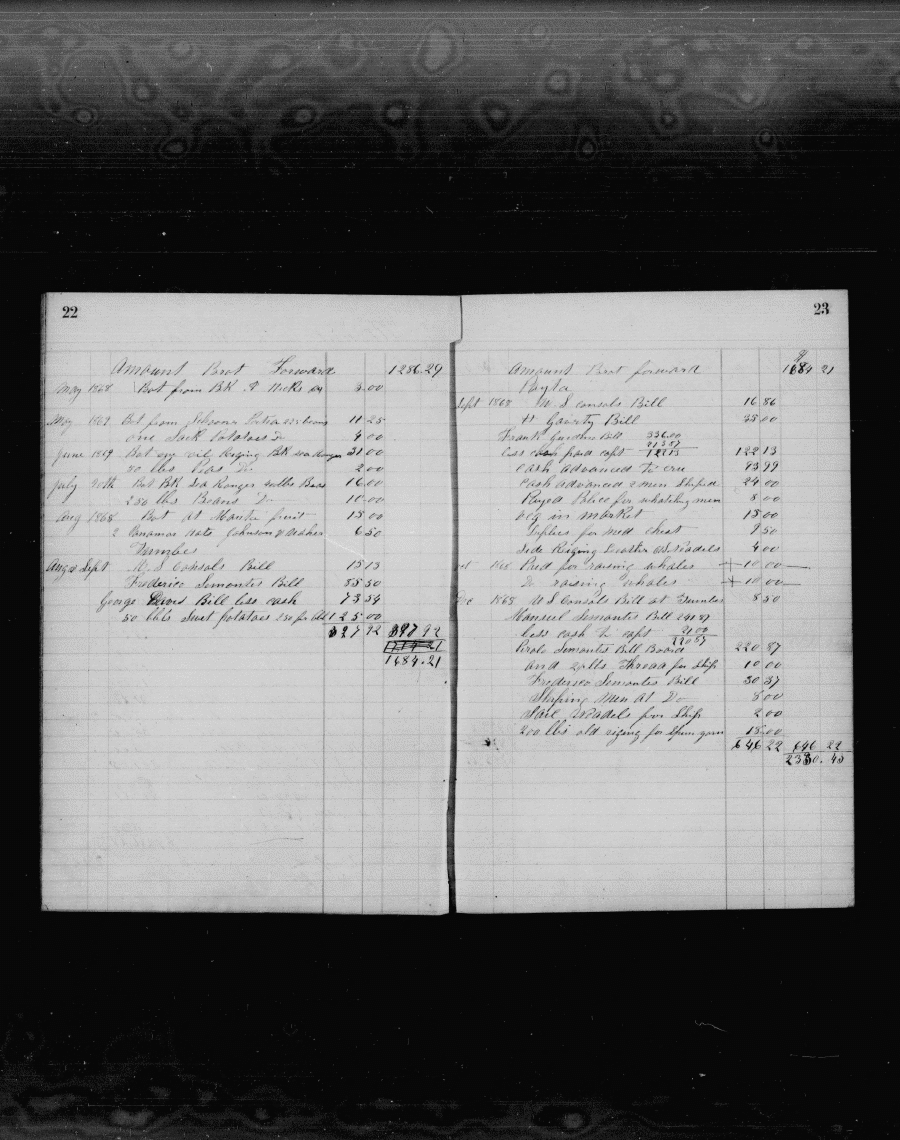 22
Amount Brot Forward 1286.29
May 1868 Bot from BK 3.00
May 1869 Bot from Schooner 11 25
one Sack Potatoes Do 4 00
June 1869 Bot Riging BK Sea Ranger 31 00
50 lbs Peas Do 2 00
July 20th Bot BK Sea Ranger Beas 16 00
250 lbs Beans Do 10.00
Aug 1868 Bot at Manta fruit 15 00
2 Johnson 6 50
Tumbes
Aug & Sept U.S Consols Bill 15 13
Frederico Lemontes Bill 85 50
George Lewis Bill less cash 73 54
50 bbls Sweet potatoes 250 pr bbl 125 00
397 92 397 92
1684.21
23
Amount Brot forward 1684 21
Payta
Sept 1868 U.S consols Bill 16 86
H Bill 35 00
Frank Bill 336.00
213 87
less cash paid capt 122 13 122 13
Cash advanced To crew 73 99
Cash advanced 2 men Shiped 24 00
Payed Police for men 8 00
veg in market 15 00
Suplies for med Chest 9 50
Side Riging 4 00
1868 Paid for raising whales 10 00
Do raising whales 10 00
Dec 1868 U S Consols Bill at Tumbes 8 50
Manuel Lemontes Bill 241 87
less cash To capt 21 00
220 87
Lemontes Bill Board 220 87
and 20 lbs Thread for Ship 10 00
Frederico Lemontes Bill 30 37
Shiping Men at Do 8 00
for Ship 2 00
200 lbs old riging for Spun yarn 18 00
646 22 646 22
2330.43